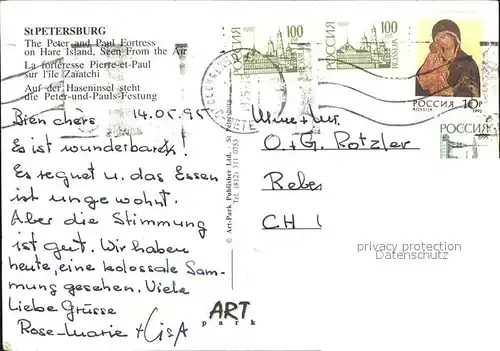 St PETERSBURG
The Peter and Paul Fortress
on Hare Island, Seen From the Air
La forteresse Pierre-et-Paul
sur l'île Zaïatchi
Auf der Haseninsel steht
die Peter-und-Pauls-Festung
14.05.95
Bien chers
Es ist wunderbarbs!
Es regnet u. das Essen
ist ungewohnt.
Aber die Stimmung
ist gut. Wir haben
heute, eine kolossale Sam-
mung gesehen. Viele
Liebe Grüsse
Rose-Marie + Lisa
© Art-Park Publisher Ltd., St Petersburg
Tel. (812) 311 0753
РОССИЯ
1992
100
ROSSIJA
РОССИЯ
1992
100
ROSSIJA
РОССИЯ 10р
ROSSIJA 1992
РОССИЯ
Mme + Mr.
O. + G. Rotzler
CH 1
privacy protection
Datenschutz
ART
park